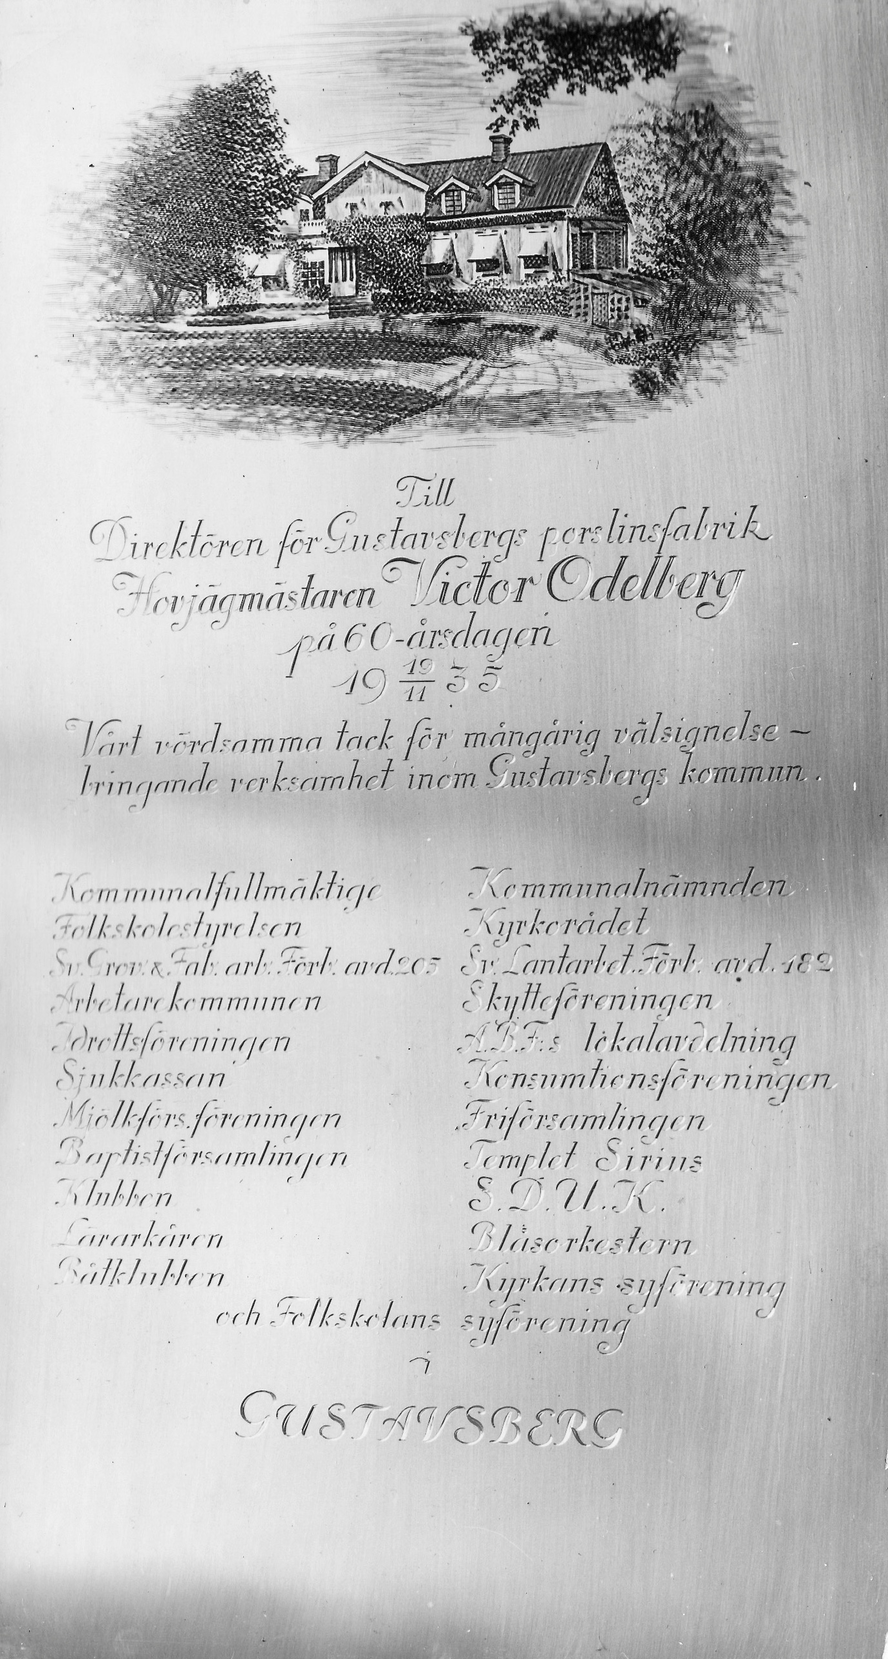 Till
Direktören för Gustavsbergs porslinsfabrik
Hovjägmästaren Victor Odelberg
på 60-årsdagen
19 19/11 35
Vårt vördsamma tack för mångårig välsignelse –
bringande verksamhet inom Gustavsbergs kommun.
Kommunalfullmäktige
Folkskolestyrelsen
Sv. Grov. & Fab. arb. Förb. avd. 205
Arbetarekommunen
Idrottsföreningen
Sjukkassan
Mjölkförs.föreningen
Baptistförsamlingen
Klubben
Lärarkåren
Båtklubben
Kommunalnämnden
Kyrkorådet
Sv. Lantarbet. Förb. avd. 182
Skytteföreningen
A.B.F:s lokalavdelning
Konsumtionsföreningen
Friförsamlingen
Templet Sirius
S.D.U.K.
Blåsorkestern
Kyrkans syförening
och Folkskolans syförening
i
GUSTAVSBERG